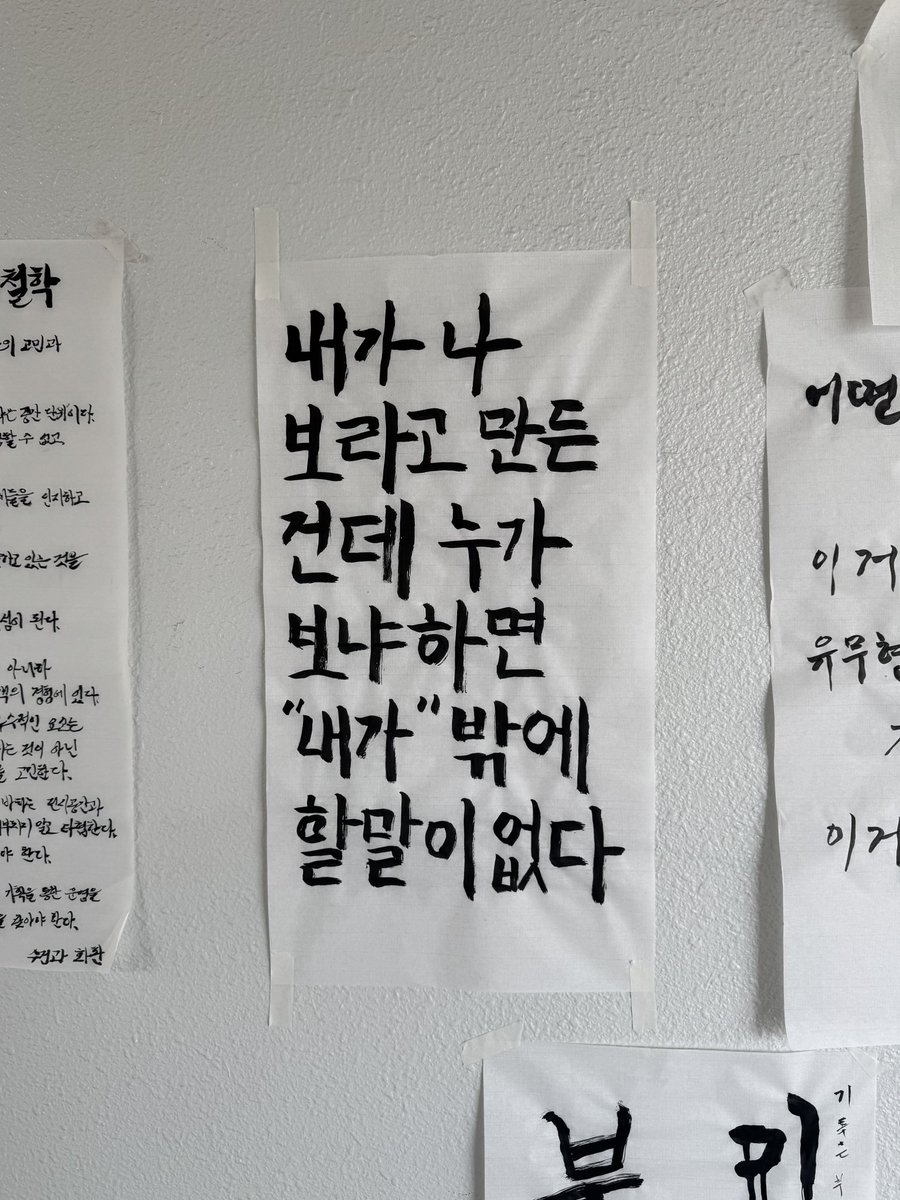 철학
의 고민과
는 중간 단계이다.
할 수 없고
이들을 인지하고
하고 있는 것을
심이 된다.
아니라
객의 경험에 있다.
수적인 요소는
는 것이 아닌
고민한다.
바타는 전시공간과
않고 타협한다.
야 한다.
기획을 통한 운영을
찾아야 한다.
수건과 화환
내가 나
보라고 만든
건데 누가
보냐하면
"내가" 밖에
할말이없다
어떤
이거
유무형
이거
기